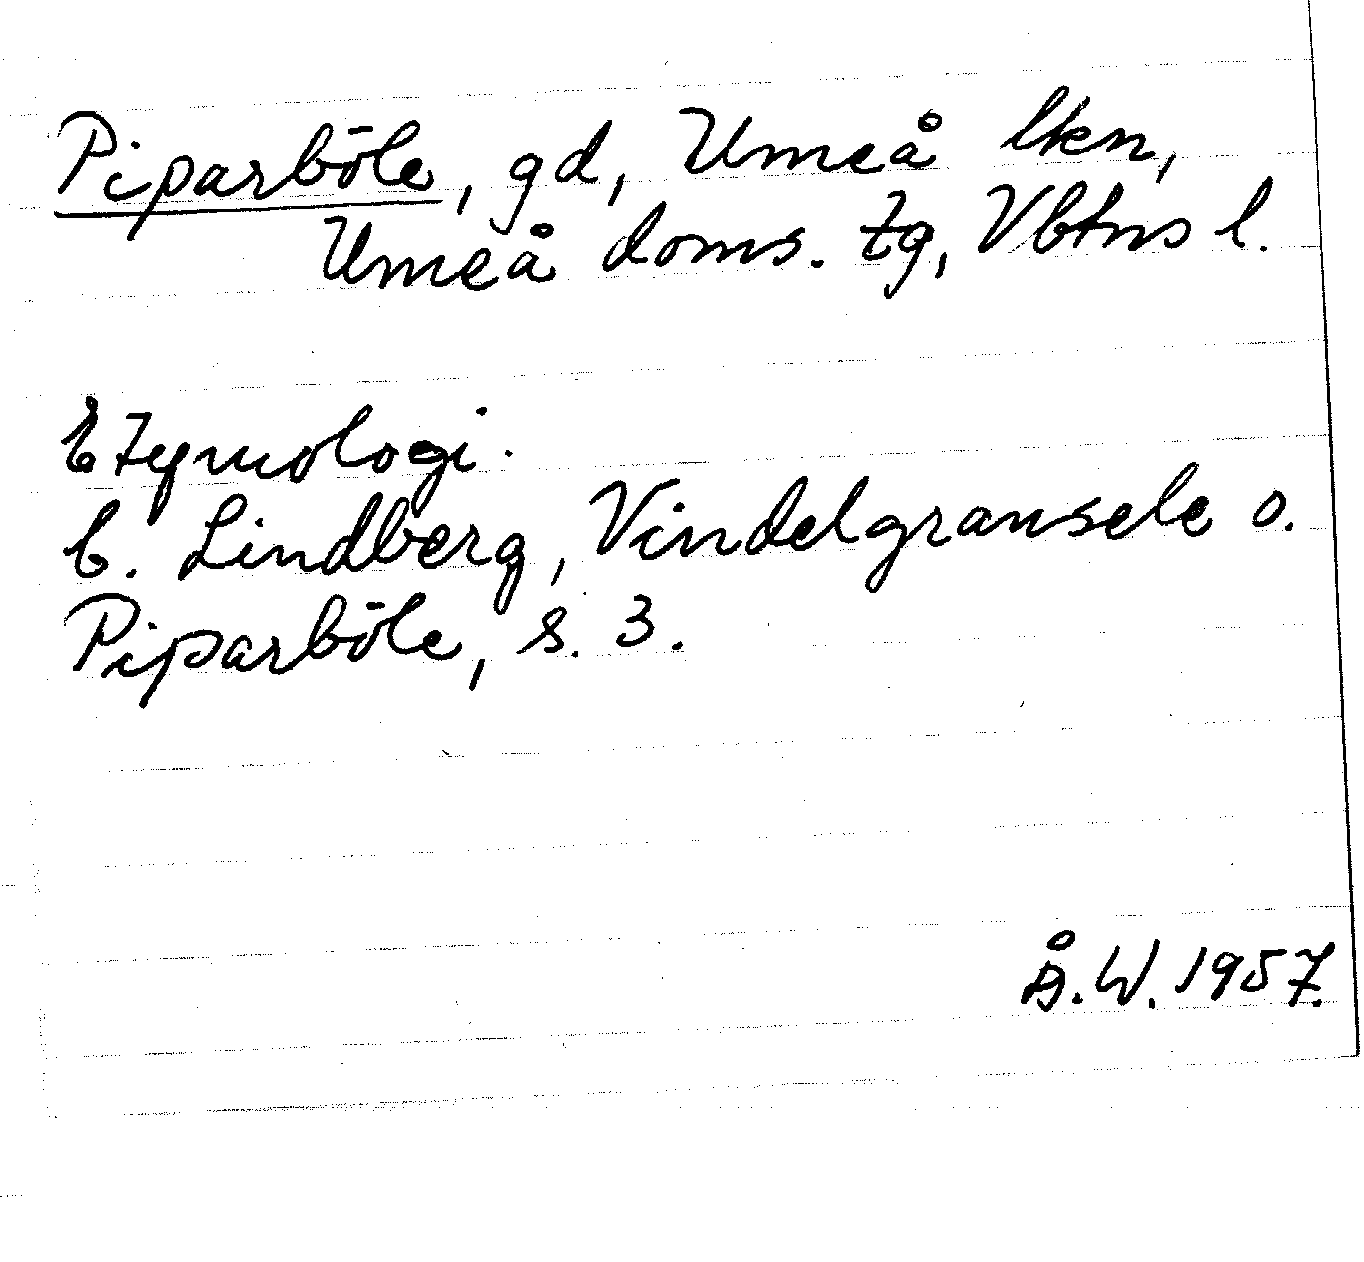 Piparböle, gd, Umeå lkn,
Umeå doms. tg, Vbtns l.
Etymologi.
C. Lindberg, Vindelgransele o.
Piparböle, s. 3.
Å.W. 1957.